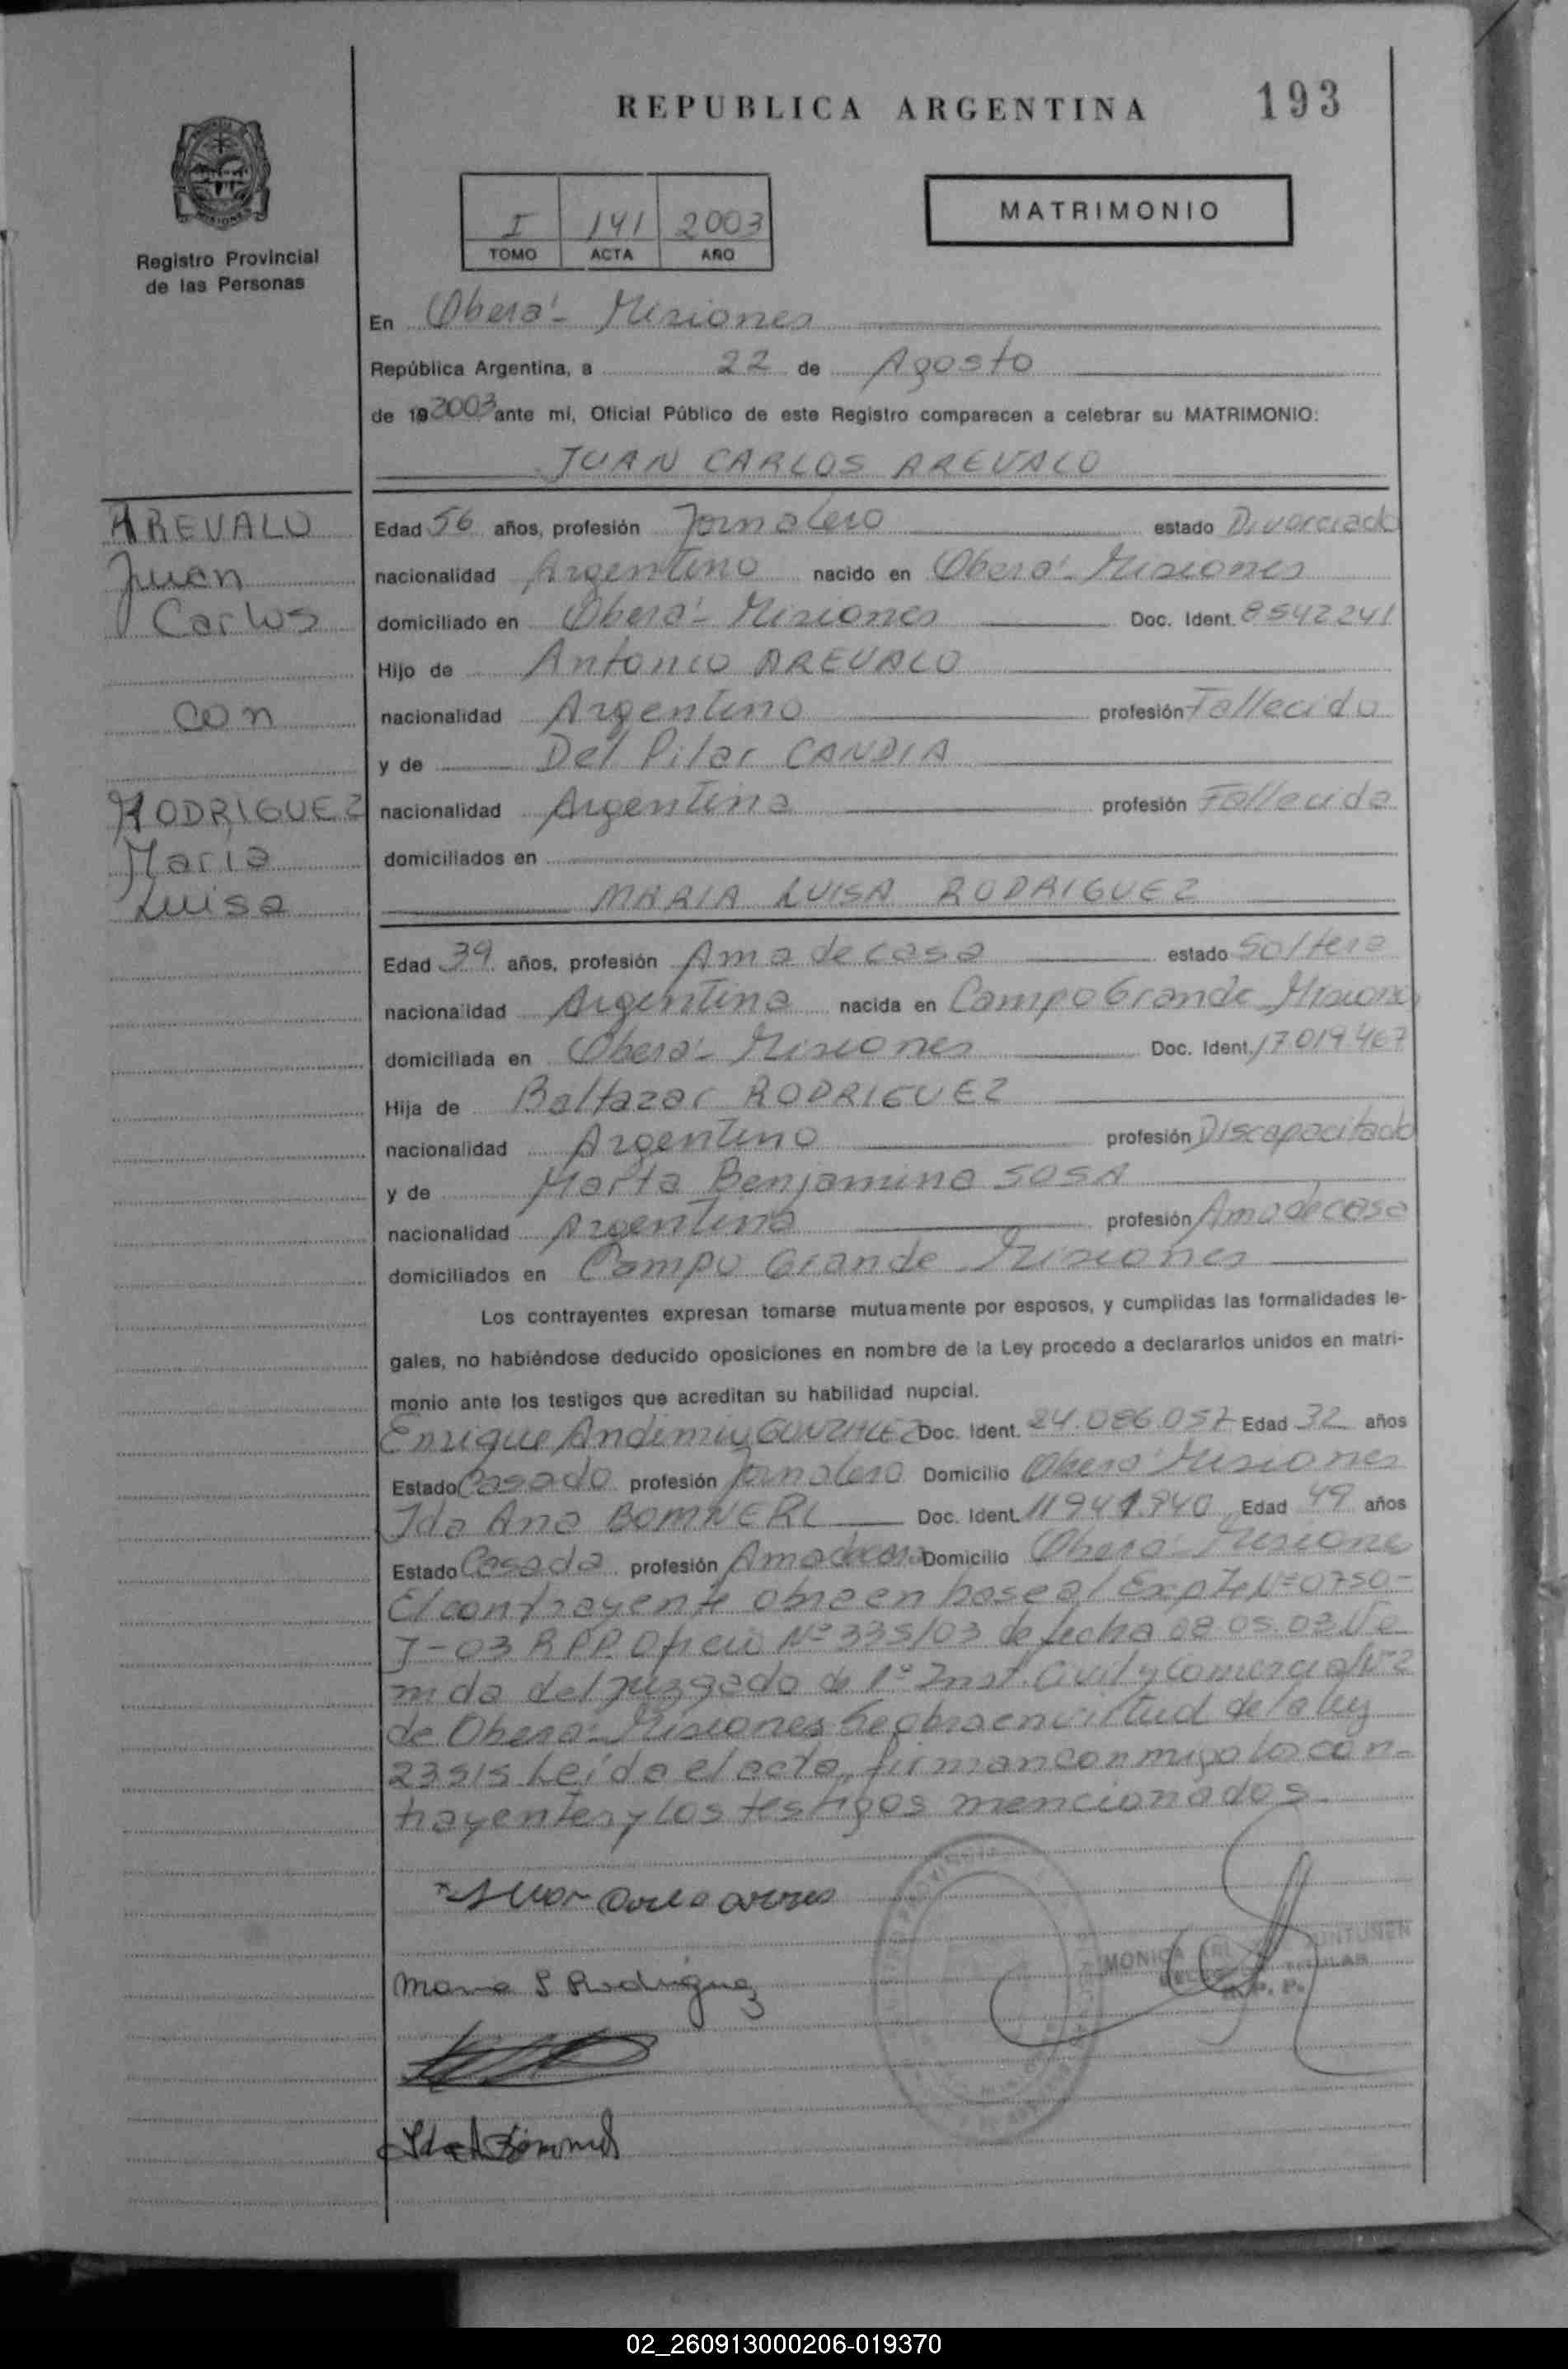 REPUBLICA ARGENTINA
193
Registro Provincial
de las Personas
I 141 2003
TOMO ACTA AÑO
MATRIMONIO
En Oberá - Misiones
República Argentina, a 22 de Agosto
de 19 2003 ante mi, Oficial Público de este Registro comparecen a celebrar su MATRIMONIO:
JUAN CARLOS AREVALO
AREVALO
Juan
Carlos
con
RODRIGUEZ
Maria
Luisa
Edad 56 años, profesión Jornalero estado Divorciado
nacionalidad Argentino nacido en Oberá - Misiones
domiciliado en Oberá - Misiones Doc. Ident. 8542241
Hijo de Antonio AREVALO
nacionalidad Argentino profesión Fallecido
y de Del Pilar CANDIA
nacionalidad Argentina profesión Fallecida
domiciliados en
MARIA LUISA RODRIGUEZ
Edad 39 años, profesión Ama de casa estado Soltera
nacionalidad Argentina nacida en Campo Grande Misiones
domiciliada en Oberá - Misiones Doc. Ident. 17.019.467
Hija de Baltazar RODRIGUEZ
nacionalidad Argentino profesión Discapacitado
y de Marta Benjamina SOSA
nacionalidad Argentina profesión Ama de casa
domiciliados en Campo Grande Misiones
Los contrayentes expresan tomarse mutuamente por esposos, y cumplidas las formalidades le-
gales, no habiéndose deducido oposiciones en nombre de la Ley procedo a declararlos unidos en matri-
monio ante los testigos que acreditan su habilidad nupcial.
Enrique GONZALEZ Doc. Ident. 24.086.057 Edad 32 años
Estado Casado profesión Jornalero Domicilio Oberá Misiones
Ida Ana Doc. Ident. 11941.940 Edad 49 años
Estado Casada profesión Ama de casa Domicilio Oberá - Misiones
El contrayente obra en base al Expte Nº 0750-
J-03 R.P.P. Oficio Nº 335/03 de fecha 08.05.03 Ve
nida del juzgado de 1º Inst. Civil y Comercial Nº 2
de Oberá - Misiones Se obra en virtud de la ley
23515 Leída el acta, firman conmigo los con-
trayentes y los testigos mencionados
Maria L Rodriguez
MONICA
TITULAR
R. P. P.
02_260913000206-019370